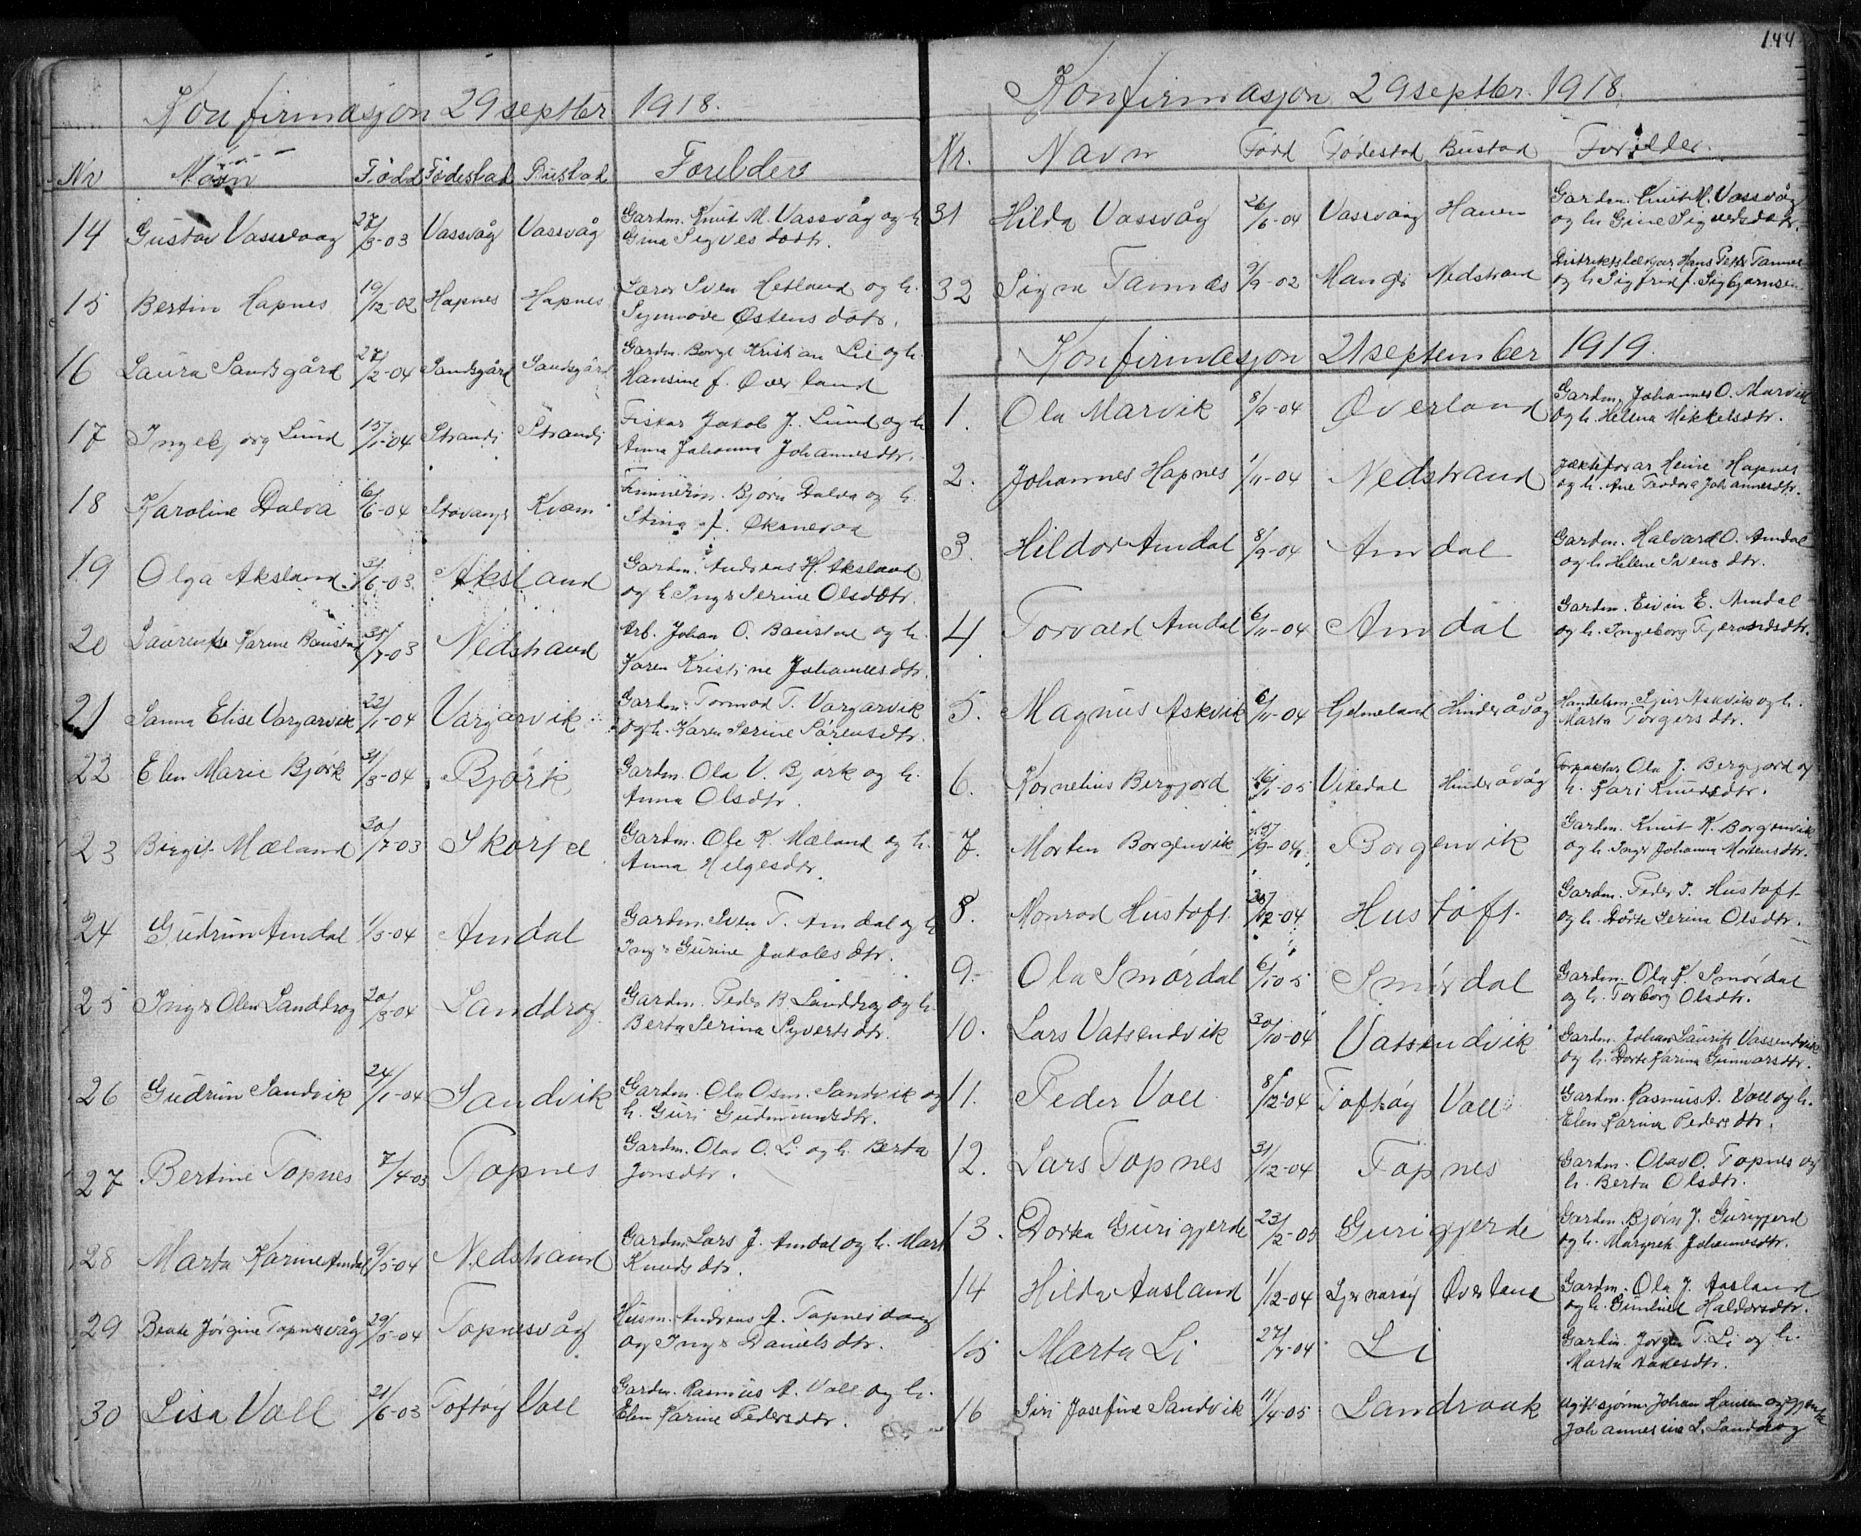 Konfirmasjon 29 septbr 1918.
Nr Navn Fødd Fødestad Bustad Foreldre
14 Gustav Vassvaag 27/3-03 Vassvåg Vassvåg Gardm. Knut M. Vassvåg og h.
Gina Sigvesdotr.
15 Bertin Hapnes 19/12-02 Hapnes Hapnes Lærar Sven Hetland og h.
Synnøve Østensdotr.
16 Laura Sandsgård 27/2-04 Sandsgård Sandsgård Gardm. Kristian Li og h.
Hansine f. Øverland
17 Ingebjorg Lund 15/1-04 Strandi Strandi Fiskar Jakob J. Lund og h.
Anna Johanna Johannesdtr.
18 Karoline Dalva 6/6-04 Stavangr Kvam Bjørn Dalva og h.
Stina f. Øksnevad
19 Olga Aksland 3/6-03 Aksland Gardm. Andreas H. Aksland
og h. Ingr Serine Olsdtr.
20 Karine Baustad 31/7-03 Nedstrand Arb. Johan O. Baustad og h.
Karen Kristine Johannesdtr.
21 Sanna Elise Vargarvik 22/1-04 Vargarvik Gardm. Tormod T. Vargarvik
og h. Karen Serine Sørensdtr.
22 Elen Marie Bjørk 31/3-04 Bjørk Gardm. Ola V. Bjørk og h.
Anna Olsdtr.
23 Birgit Mæland 30/7-03 Gardm. Ole K. Mæland og h.
Anna Helgesdtr.
24 Gudrun Amdal 1/5-04 Amdal Gardm. Sven T. Amdal og h.
Ingr Gurine Jakobsdtr.
25 Ingr Olen Landdrog 20/3-04 Landdrog Gardm. Peder B Landdrog og h.
Berta Serina Syvertsdtr.
26 Gudrun Sandvik 24/1-04 Sandvik Gardm. Ola Osm. Sandvik og
h. Guri Gudmunsdtr.
27 Bertine Topnes 7/4-03 Topnes Gardm. Olav O. Li og h. Berta
Jonsdtr.
28 Marta Karine Amdal 9/5-04 Nedstrand Gardm. Lars J. Amdal og h. Mart
Knudsdtr.
29 Beate Jørgine Topnesvåg 29/5-04 Topnesvåg Husm. Andreas A. Topnesvaag
og Ingr Danielsdtr.
30 Lisa Voll 21/6-03 Toftøy Voll Gardm. Rasmus A. Voll og h.
Elen Karine Pedersdtr.
144
Konfirmasjon 29 septbr. 1918.
Nr. Navn Fødd Fødestad Bustad Foreldre.
31 Hilda Vassvåg 26/6-04 Vassvåg Gardm. Knut M. Vassvåg
og h. Gine Sigvesdotr.
32 Signe Tannæs 9/9-02 Mangr Nedstrand Distriktslækjar Hans Tannæs
og h. Sigfrid f. Sigbjørnsen
Konfirmasjon 21 september 1919.
1. Ola Marvik 8/9-04 Øverland Gardm. Johannes O. Marvik
og h. Helena Mikkelsdtr.
2. Johannes Hapnes 1/11-04 Nedstrand Jækteførar Heine Hapnes
og h. Ane Teodora Johannesdtr.
3. Hildor Amdal 8/9-04 Amdal Gardm. Halvard O. Amdal
og h. Helene Svensdtr.
4. Torvald Amdal 6/11-04 Amdal Gardm. Eivin E. Amdal
og h. Ingeborg
5. Magnus Askvik 6/11-04 Hinderåvåg Handelsm. Askvik og h.
Marta Torgersdtr.
6. Kornelius Bergjord 16/1-05 Vikedal Hinderåvåg Forpaktar Ola J. Bergjord og
h. Kari Knudsdtr.
7. Morten Borgenvik 25/9-04 Borgenvik Gardm. Knut K. Borgenvik
og h. Ingr Johanna Mortensdtr.
8. Monrad Hustoft 25/12-04 Hustoft Gardm. Peder Hustoft
og h. Dårte Serina Olsdtr.
9. Ola Smørdal 6/1 05 Smørdal Gardm. Ola K Smørdal
og h. Torborg Olsdtr.
10. Lars Vatsendvik 30/10-04 Vatsendvik Gardm. Johan Laurits Vassendvik
og h. Dorte Karina Gunnarsdtr.
11. Peder Voll 8/12-04 Toftøy Voll Gardm. Rasmus A. Voll og h.
Elen Karina Pedersdtr.
12. Lars Topnes 31/12-04 Topnes Gardm. Olav O. Topnes og
h. Berta Olsdtr.
13. Dorta Gurigjerde 23/2-05 Gurigjerde Gardm. Bjørn J. Gurigjerd
og h. Margret Johannesdtr.
14 Hilda Aasland 1/12-04 Sjernarøy Øverland Gardm. Ola J. Aasland
og h. Gunhild Haldorsdtr.
15 Marta Li 27/7-04 Li Gardm. Jørgen T. Li og h.
Marta Aanesdtr.
16 Siri Josefine Sandvik 11/4-05 Landraak Ugift sjøm. Johan Hansen og gjenta
Johannesine L. Landdrog